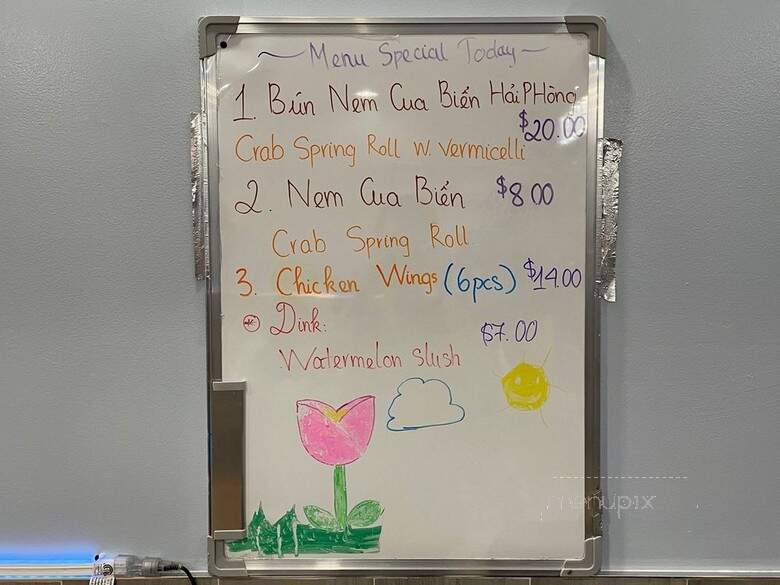 Menu Special Today
1. Bún Nem Cua Biển Hải PHòng
$20.00
Crab Spring Roll w. vermicelli
2. Nem Cua Biển $8.00
Crab Spring Roll
3. Chicken Wings (6pcs) $14.00
Dink: $7.00
Watermelon slush
menupix